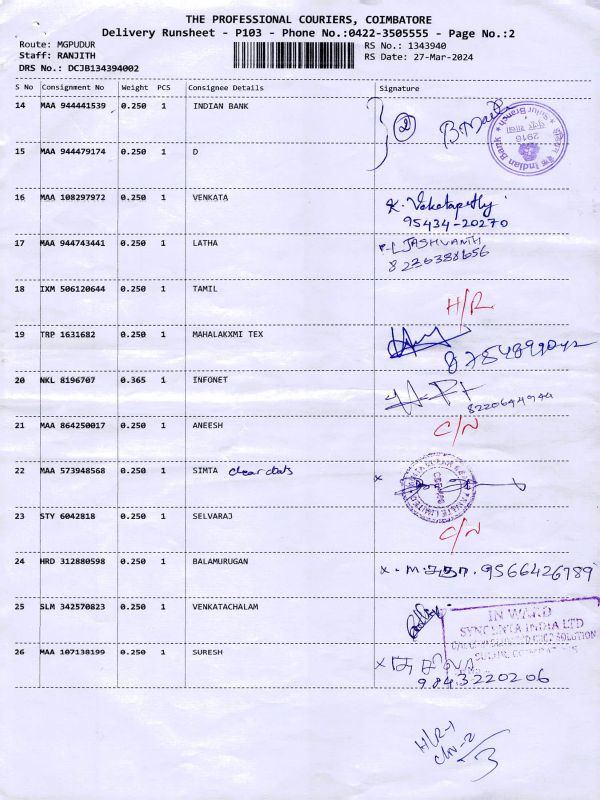 THE PROFESSIONAL COURIERS, COIMBATORE
Delivery Runsheet - P103 - Phone No.:0422-3505555 - Page No.:2
Route: MGPUDUR
Staff: RANJITH
DRS No.: DCJB134394002
RS No.: 1343940
RS Date: 27-Mar-2024
S No Consignment No Weight PCS Consignee Details Signature
14 MAA 944441539 0.250 1 INDIAN BANK
2
Indian Bank
2916
Sulur Branch
15 MAA 944479174 0.250 1 D
16 MAA 108297972 0.250 1 VENKATA
95434-20270
17 MAA 944743441 0.250 1 LATHA
JASHVANTH
18 IXM 506120644 0.250 1 TAMIL H/R
19 TRP 1631682 0.250 1 MAHALAKXMI TEX
20 NKL 8196707 0.365 1 INFONET
21 MAA 864250017 0.250 1 ANEESH C/N
22 MAA 573948568 0.250 1 SIMTA
23 STY 6042818 0.250 1 SELVARAJ C/N
24 HRD 312880598 0.250 1 BALAMURUGAN x. 9566426789
25 SLM 342570823 0.250 1 VENKATACHALAM
IN WARD
SYNGENTA INDIA LTD
26 MAA 107138199 0.250 1 SURESH
9843220206
H/R-1
C/N-2
3